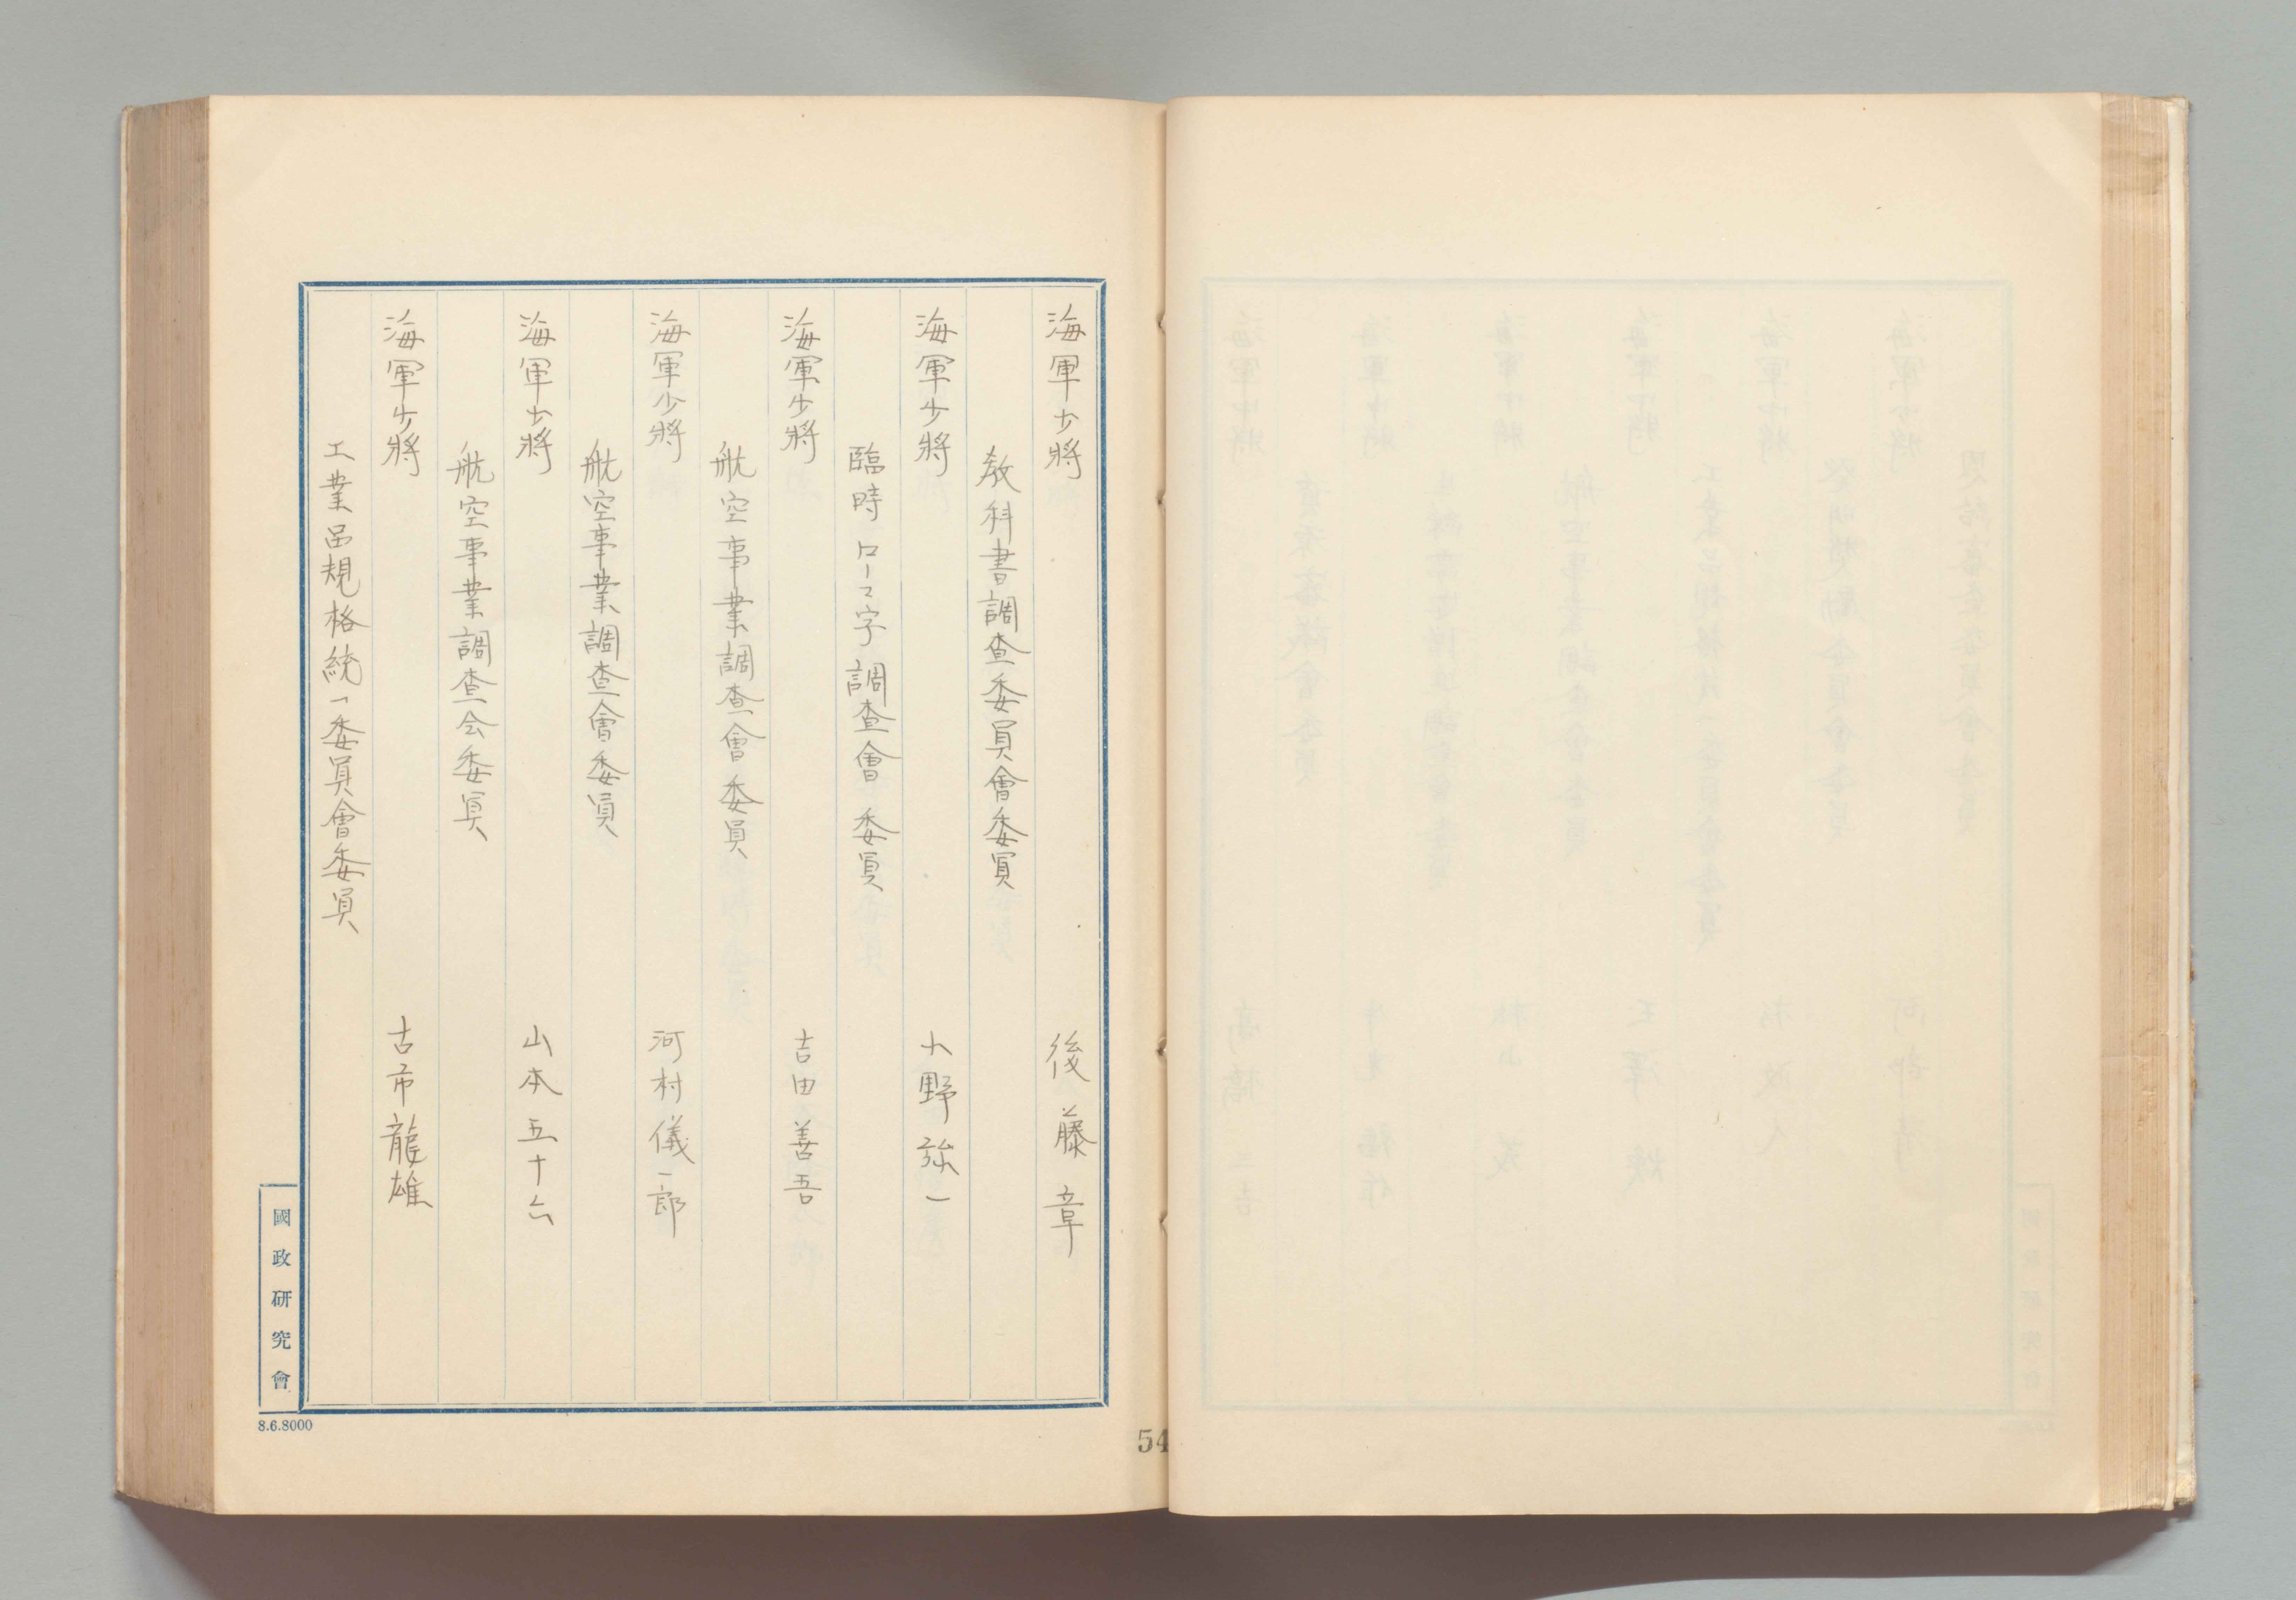 海軍少將 後藤章
教科書調查委員會委員
海軍少將 小野弥一
臨時ローマ字調查會委員
海軍少將 吉田善吾
航空事業調查會委員
海軍少將 河村儀一郎
航空事業調查會委員
海軍少將 山本五十六
航空事業調查会委員
海軍少將 古市龍雄
工業品規格統一委員會委員
國政研究會
8.6.8000
54